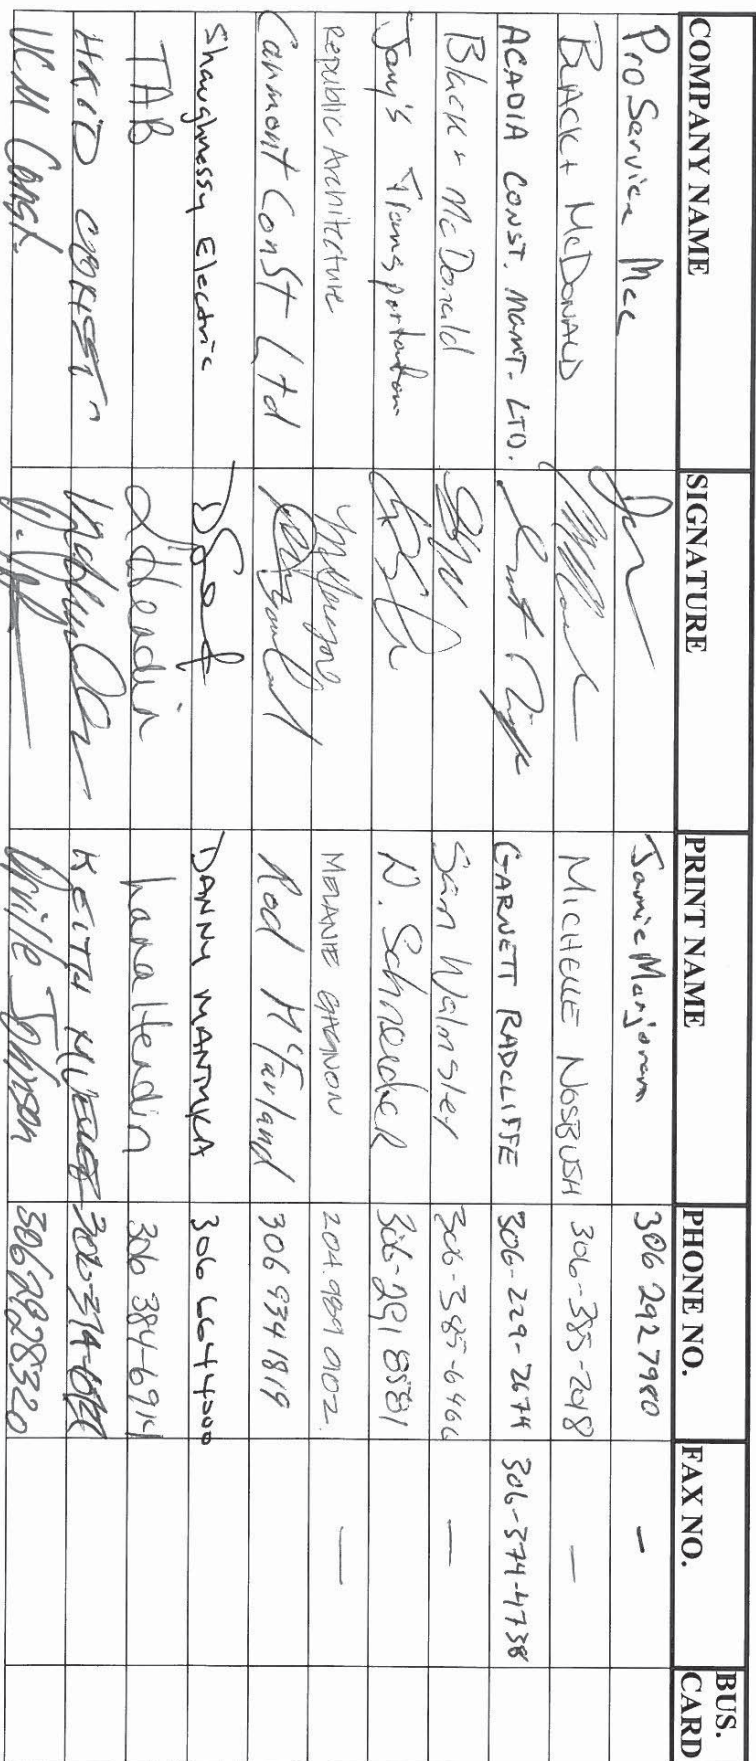 COMPANY NAME SIGNATURE PRINT NAME PHONE NO. FAX NO. BUS. CARD
Pro Service Mec Jamie Marjoram 306 292 7980 -
BLACK + McDONALD MICHELLE NOSBUSH 306-385-2418 -
ACADIA CONST. MGMT. LTD. GARNETT RADCLIFFE 306-229-2674 306-374-4738
Black + McDonald Sean Walmsley 306-385-6466 -
Jay's Transportation D. Schneider 306-291 8581
Republic Architecture MELANIE GAGNON 204.989 0102. -
Carmont Const Ltd Rod McFarland 306 934 1819
Shaughnessy Electric DANNY MANTYKA 306 664 4000
TAB L Hendin Lana Hendin 306 384-6914
HAID KEITH
UCM Const. Orville Johnson 306 292 8320